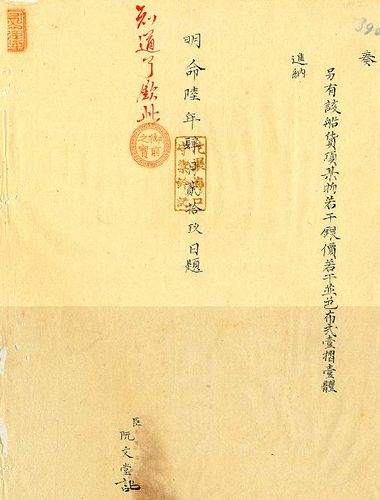 奏
另有該船貨項某物若干銀價若干並邑布貳壹摺壹體
進納
明命陸年肆月貳拾玖日題
知道了欽此
御前之寶
臣阮文堂記
390